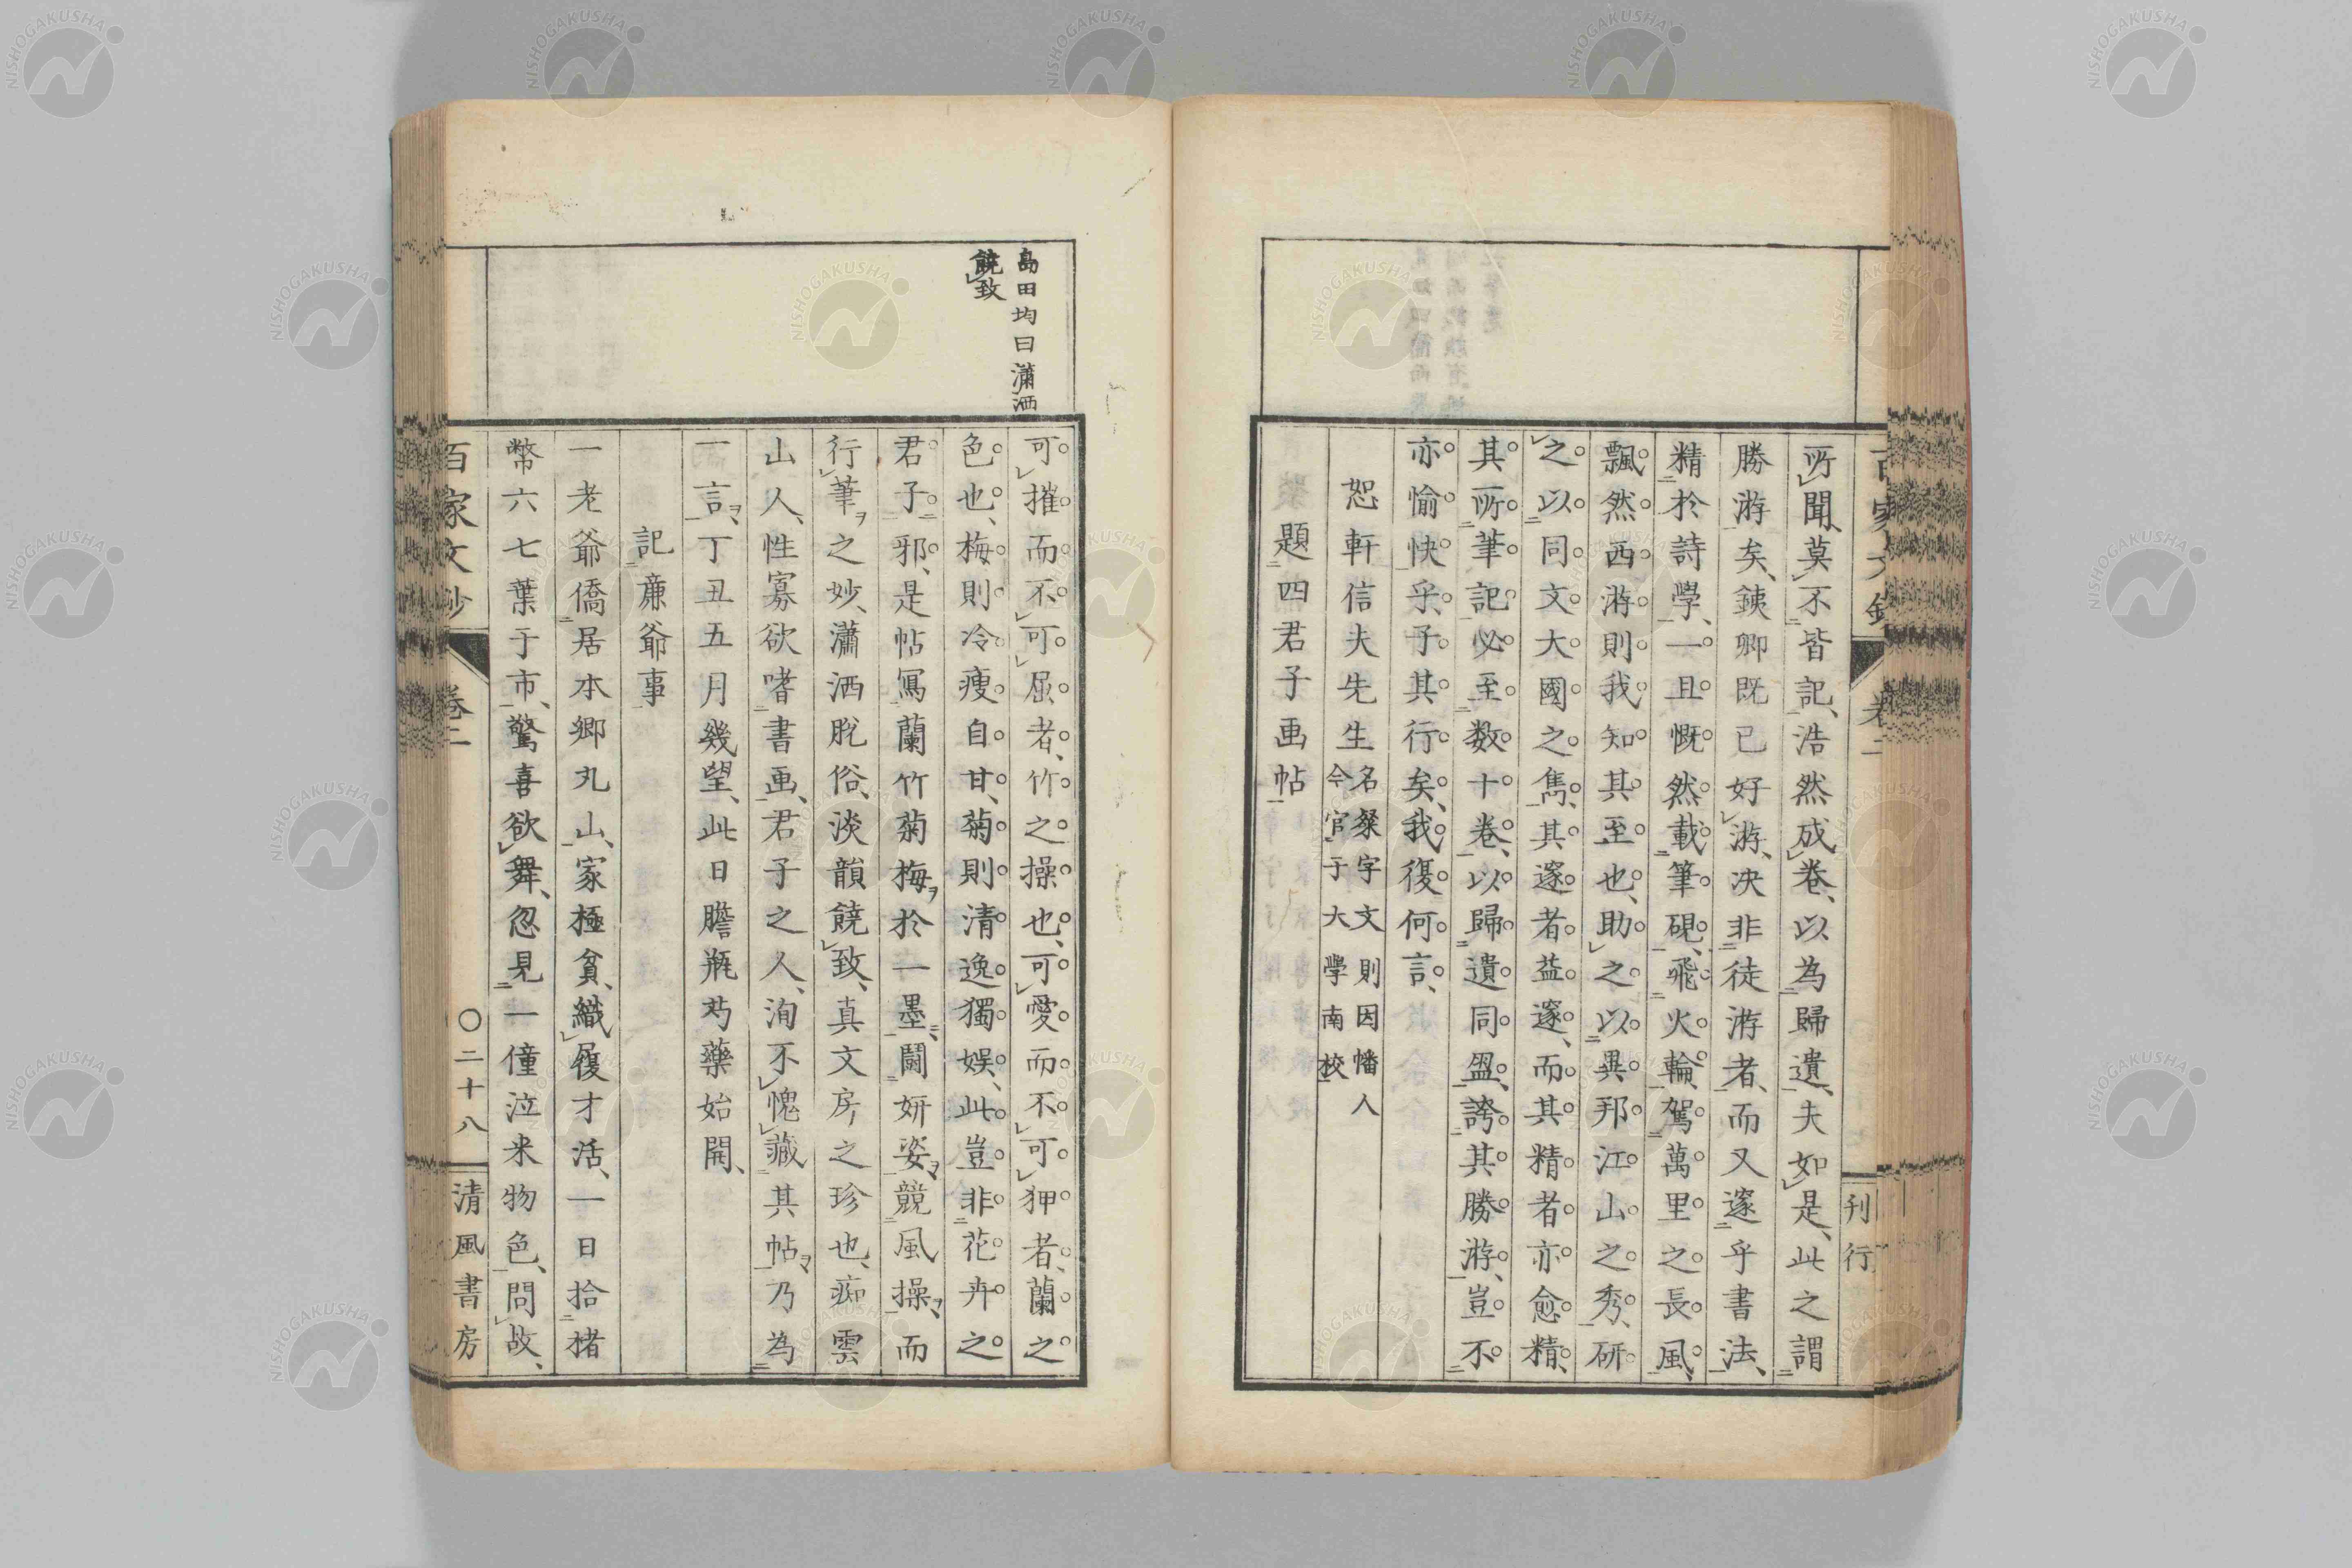 所聞、莫不皆記、浩然成卷、以為歸遺、夫如是、此之謂
勝游矣、銕卿既已好游、决非徒游者、而又邃乎書法、
精於詩學、一旦慨然載筆硯、飛火輪、駕萬里之長風、
飄然西游則我知其至也、助之以異邦江山之秀、研
之以同文大國之雋、其邃者益邃、而其精者亦愈精、
其所筆記必至数十卷、以歸遺同盟、誇其勝游、豈不
亦愉快乎、子其行矣、我復何言、
恕軒信夫先生 名粲字文則因幡人
今官于大學南校
題四君子画帖
刊行
島田均曰瀟洒
饒致
可摧而不可屈者、竹之操也、可愛而不可狎者、蘭之
色也、梅則冷瘦自甘、菊則清逸獨娯、此豈非花卉之
君子邪、是帖寫蘭竹菊梅於一墨、鬪妍姿、競風操、而
行筆之妙、瀟洒脫俗、淡韻饒致、真文房之珍也、痴雲
山人、性寡欲嗜書画、君子之人、洵不愧藏其帖、乃為
一言、丁丑五月幾望、此日膽瓶芍藥始開、
記廉爺事
一老爺僑居本郷丸山、家極貧、織履才活、一日拾楮
幣六七葉于市、驚喜欲舞、忽見一僮泣来物色、問故、
百家文鈔 卷二 〇二十八 清風書房